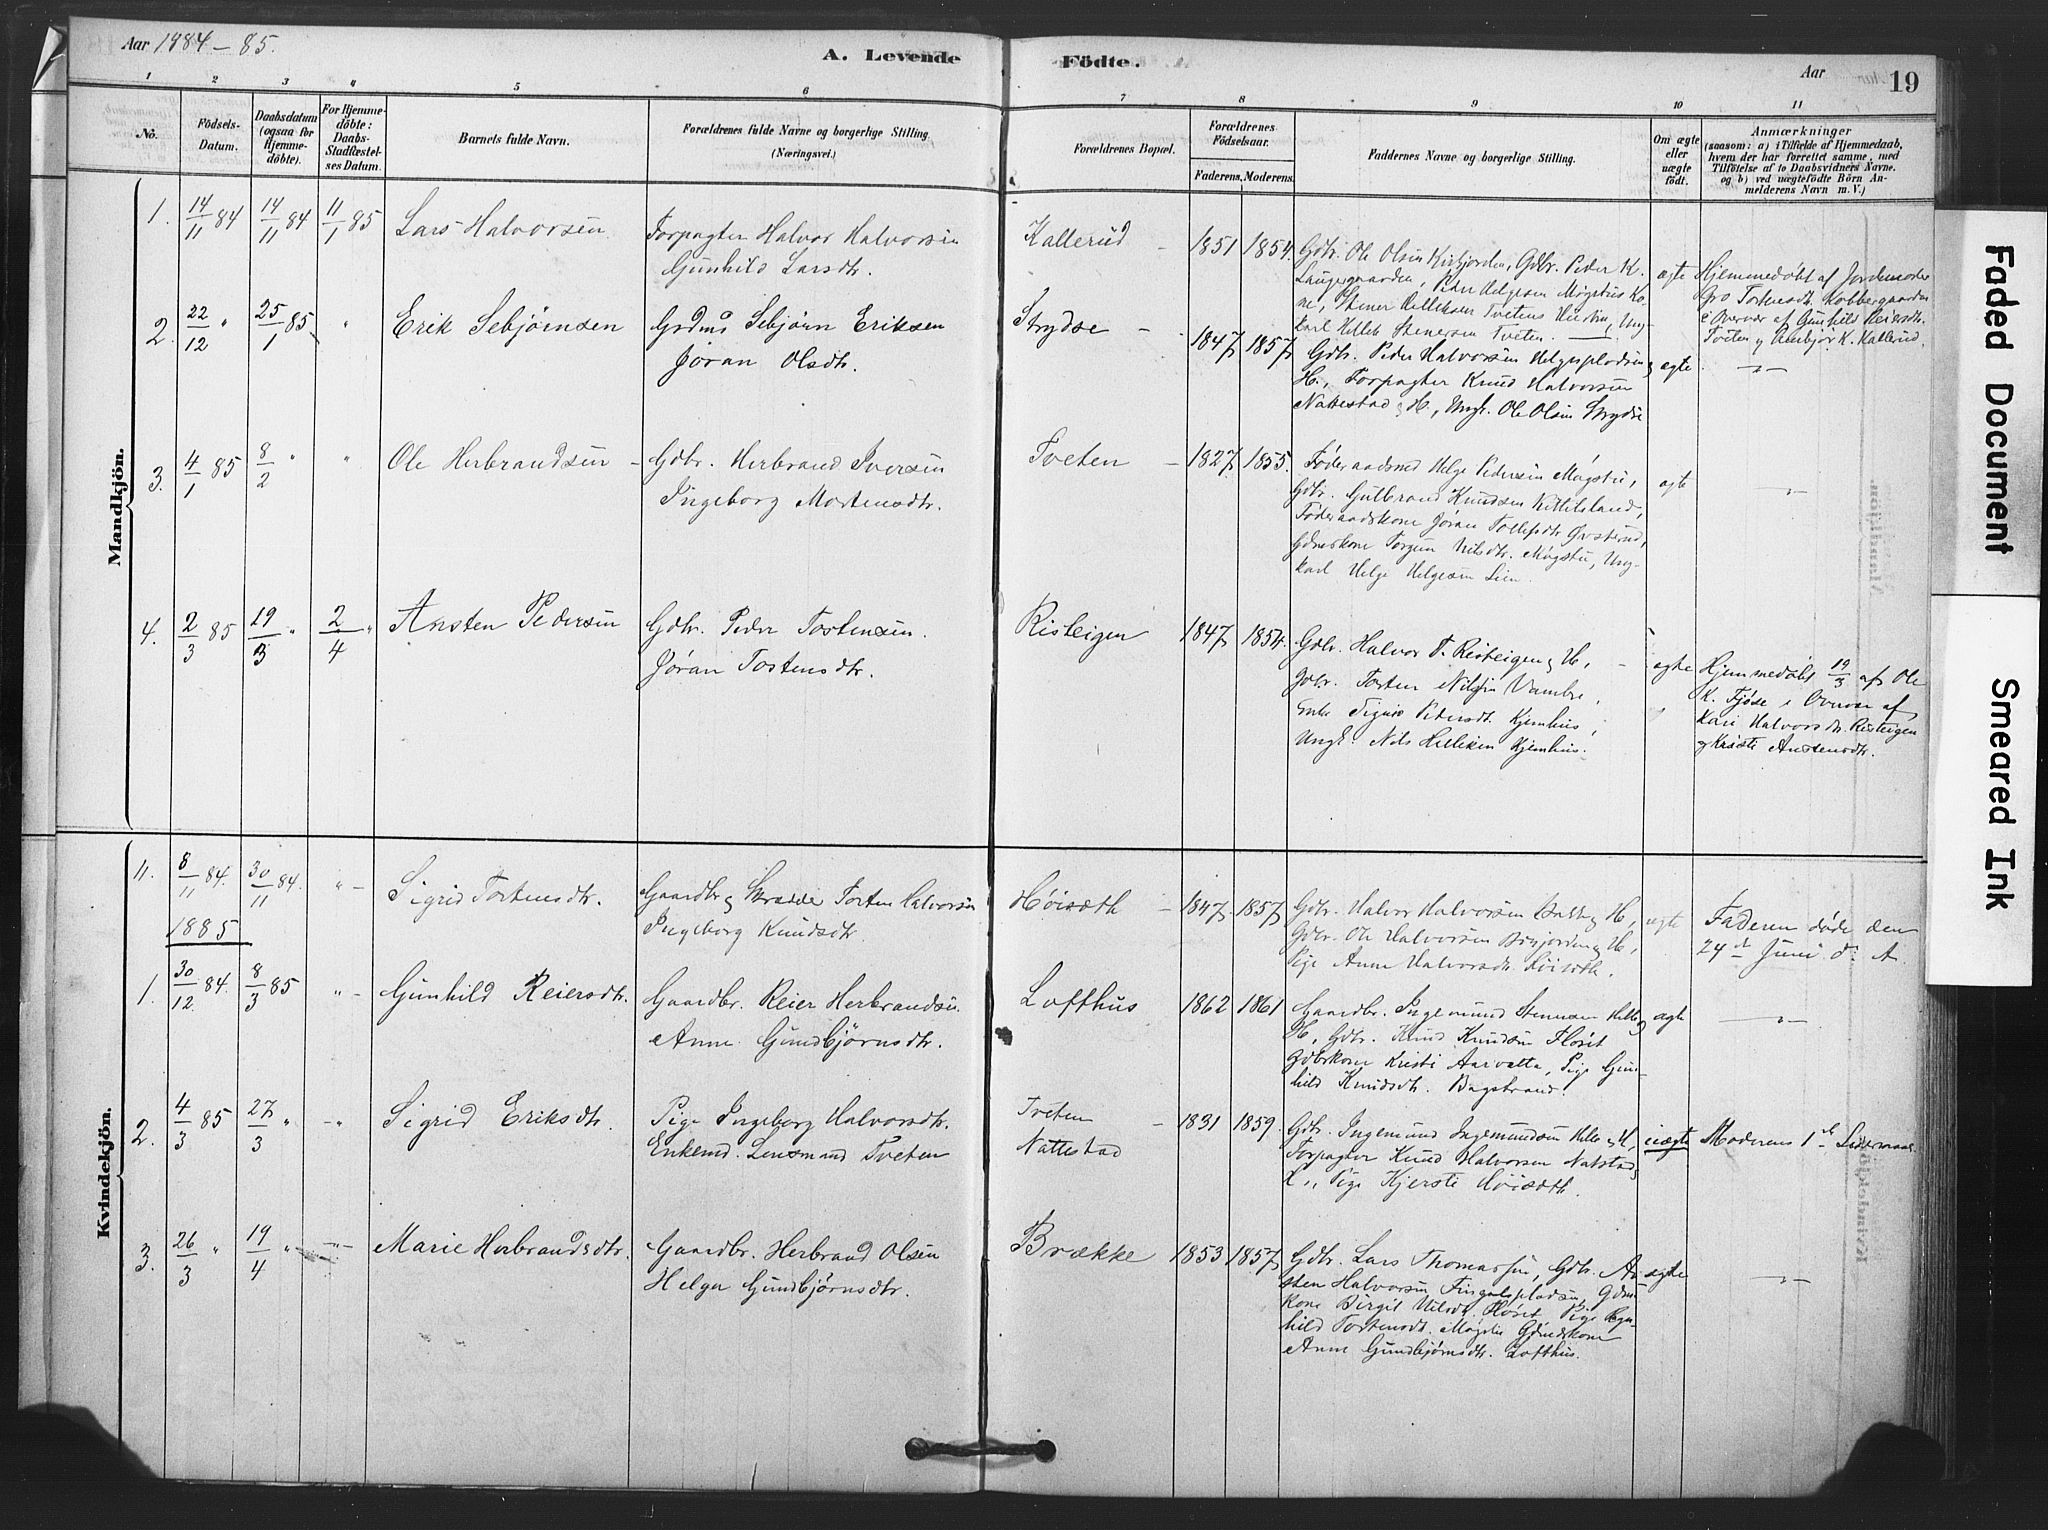 Aar 1884-85.
A. Levende Födte.
Aar
19
1 2 3 4 5 6 7 8 9 10 11
No.
Födsels-Datum.
Daabsdatum (ogsaa for Hjemmedöbte).
For Hjemmedöbte: Daabs-Stadfæstelses Datum.
Barnets fulde Navn.
Forældrenes fulde Navne og borgerlige Stilling.
(Næringsvei.)
Forældrenes Bopæl.
Forældrenes Födselsaar.
Faderens. Moderens.
Faddernes Navne og borgerlige Stilling.
Om ægte eller uægte födt.
Anmærkninger
(saasom: a) i Tilfælde af Hjemmedaab,
hvem der har forrettet samme, med
Tilföielse af to Daabsvidners Navne,
og b) ved uægtefödte Börn Anmelderens Navn m. V.)
Mandkjön.
1. 14/11 84 14/11 84 11/1 85 Lars Halvorsen
Forpagter Halvor Halvorsen
Gunhild Larsdtr.
Kallerud - 1851 1854.
Gdbr. Ole Olsen , Gdbr. Peder K.
Peder Helgesen Møgstus Ko-
ne, Stener Helleksen Tvetens Hustru, Ung-
karl Hellek Stenersen Tveten.
ægte
Hjemmedøbt af Jordemoder
Gro Tostensdtr. Kobbergaarden
i Overvær af Gunhild Reiersdtr.
Tveten og K. Kallerud.
2. 22/12 " 25/1 85 " Erik Sebjørnsen
Sebjørn Eriksen
Jøran Olsdtr.
Strydse - 1847 1857
Gdbr. Peder Halvorsen Helgesplodsen &
H., Forpagter Knud Halvorsen
Nattestad & H., Ungk. Ole Olsen Strydse
ægte - " -
3. 4/1 85 8/2 " " Ole Herbrandsen -
Gdbr. Herbrand Iversen
Ingeborg Mortensdtr.
Tveten - 1827 1855.
Føderaadsmd Helge Pedersen Møgstu,
Gdbr. Gulbrand Knudsen Kittilsland,
Føderaadskone Jøran Tollefsdtr ,
Gdmskone Torgun Nilsdtr. Møgstu, Ung-
karl Helge Helgesen Lien.
ægte - " -
4. 2/3 85 19/3 " 2/4 " Ansten Pedersen
Gdbr. Peder Tostensen.
Jøran Tostensdtr.
Risteigen 1847 1854.
Gdbr. Halvor T. Risteigen & H.,
Gdbr. Tosten Nilsen ,
Enke Pedersdt. Kjemhus,
Ungk. Nils Helleksen Kjemhus.
ægte
Hjemmedøbt 19/3 af Ole
K. Fjøse i Overvær af
Kari Halvorsdtr. Risteigen
og Kristi Anstensdtr.
Kvindekjön.
11. 8/11 84. 30/11 84. " - Sigrid Tostensdtr.
Gaardbr. & Skrædder Tosten Halvorsen
Ingeborg Knudsdtr.
Høisæth - 1847. 1857
Gdbr. Halvor Halvorsen & H.,
Gdbr. Ole Halvorsen & H.,
Pige Anne Halvorsdtr. Høisæth.
ægte
Faderen døde den
24de Juni d. A.
1885
1. 30/12 84. 8/3 85 " - Gunhild Reiersdtr.
Gaardbr. Reier Herbrandsen.
Anne Gundbjørnsdtr.
Lofthus 1862 1861
Gaardbr. Ingemund Stenersen &
H., Gdbr. Knud Knudsen Fløset
Gdbrskone Kristi , Pige Gun-
hild Knudsdtr. Bagstrand.
ægte - " -
2. 4/3 85 27/3 " - " Sigrid Eriksdtr.
Pige Ingeborg Halvorsdtr.
Enkemd. Lensmand Tveten
Tveten
Nattestad
- 1831 1859.
Gdbr. Ingemund Ingemundsen & H.,
Forpagter Knud Halvorsen &
H., Pige Kjersti Høisæth.
uægte
Moderens 1ste
3. 26/3 " 19/4 " - " - Marie Herbrandsdtr.
Gaardbr. Herbrand Olsen
Helga Gundbjørnsdtr.
Brække 1853 1857
Gdbr. Lars Thomassen, Gdbr. An-
sten Halvorsen Fingalspladsen, Gdm-
kone Birgit Nilsdt. Fløset, Pige Gun-
hild Tostensdt. Gdmdskone
Anne Gundbjørnsdtr. Lofthus.
ægte - " -
Faded Document
Smeared Ink